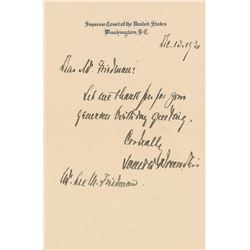 Supreme Court of the United States
Washington, D.C.
Dec. 13, 1920
Dear Mr Friedman:
Let me thank you for your
generous birthday greeting.
Cordially
Louis D Brandeis
Mr. Lee M. Friedman.